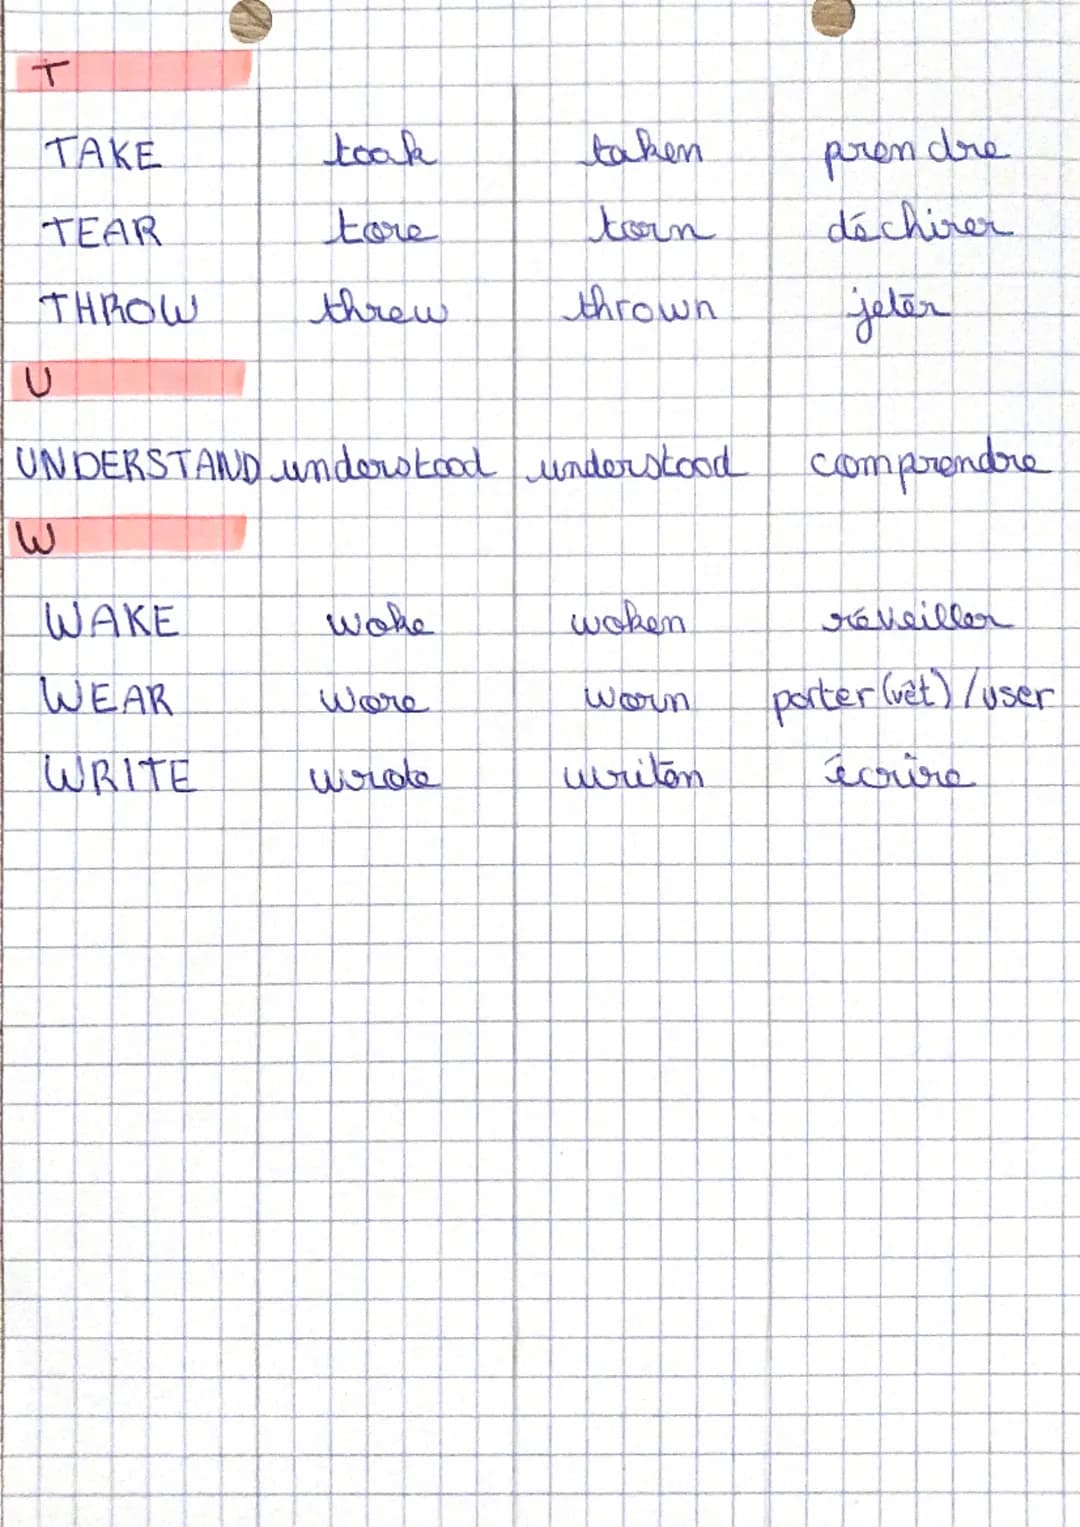 T
TAKE took taken prendre
TEAR tore torn déchirer
THROW threw thrown jeter
U
UNDERSTAND understood understood comprendre
W
WAKE woke woken réveiller
WEAR wore worn porter (vêt) / user
WRITE wrote writen écrire